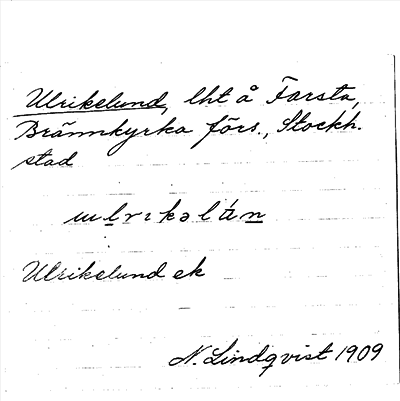 Ulrikelund, lht å Farsta,
Brännkyrka förs., Stockh.
stad
ulrıkəlún
Ulrikelund ek
N. Lindqvist 1909